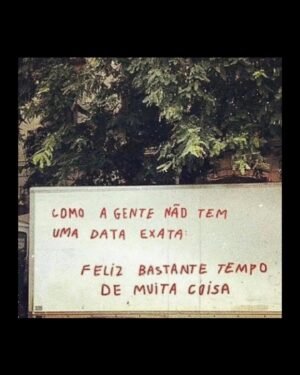 COMO A GENTE NÃO TEM
UMA DATA EXATA:
FELIZ BASTANTE TEMPO
DE MUITA COISA